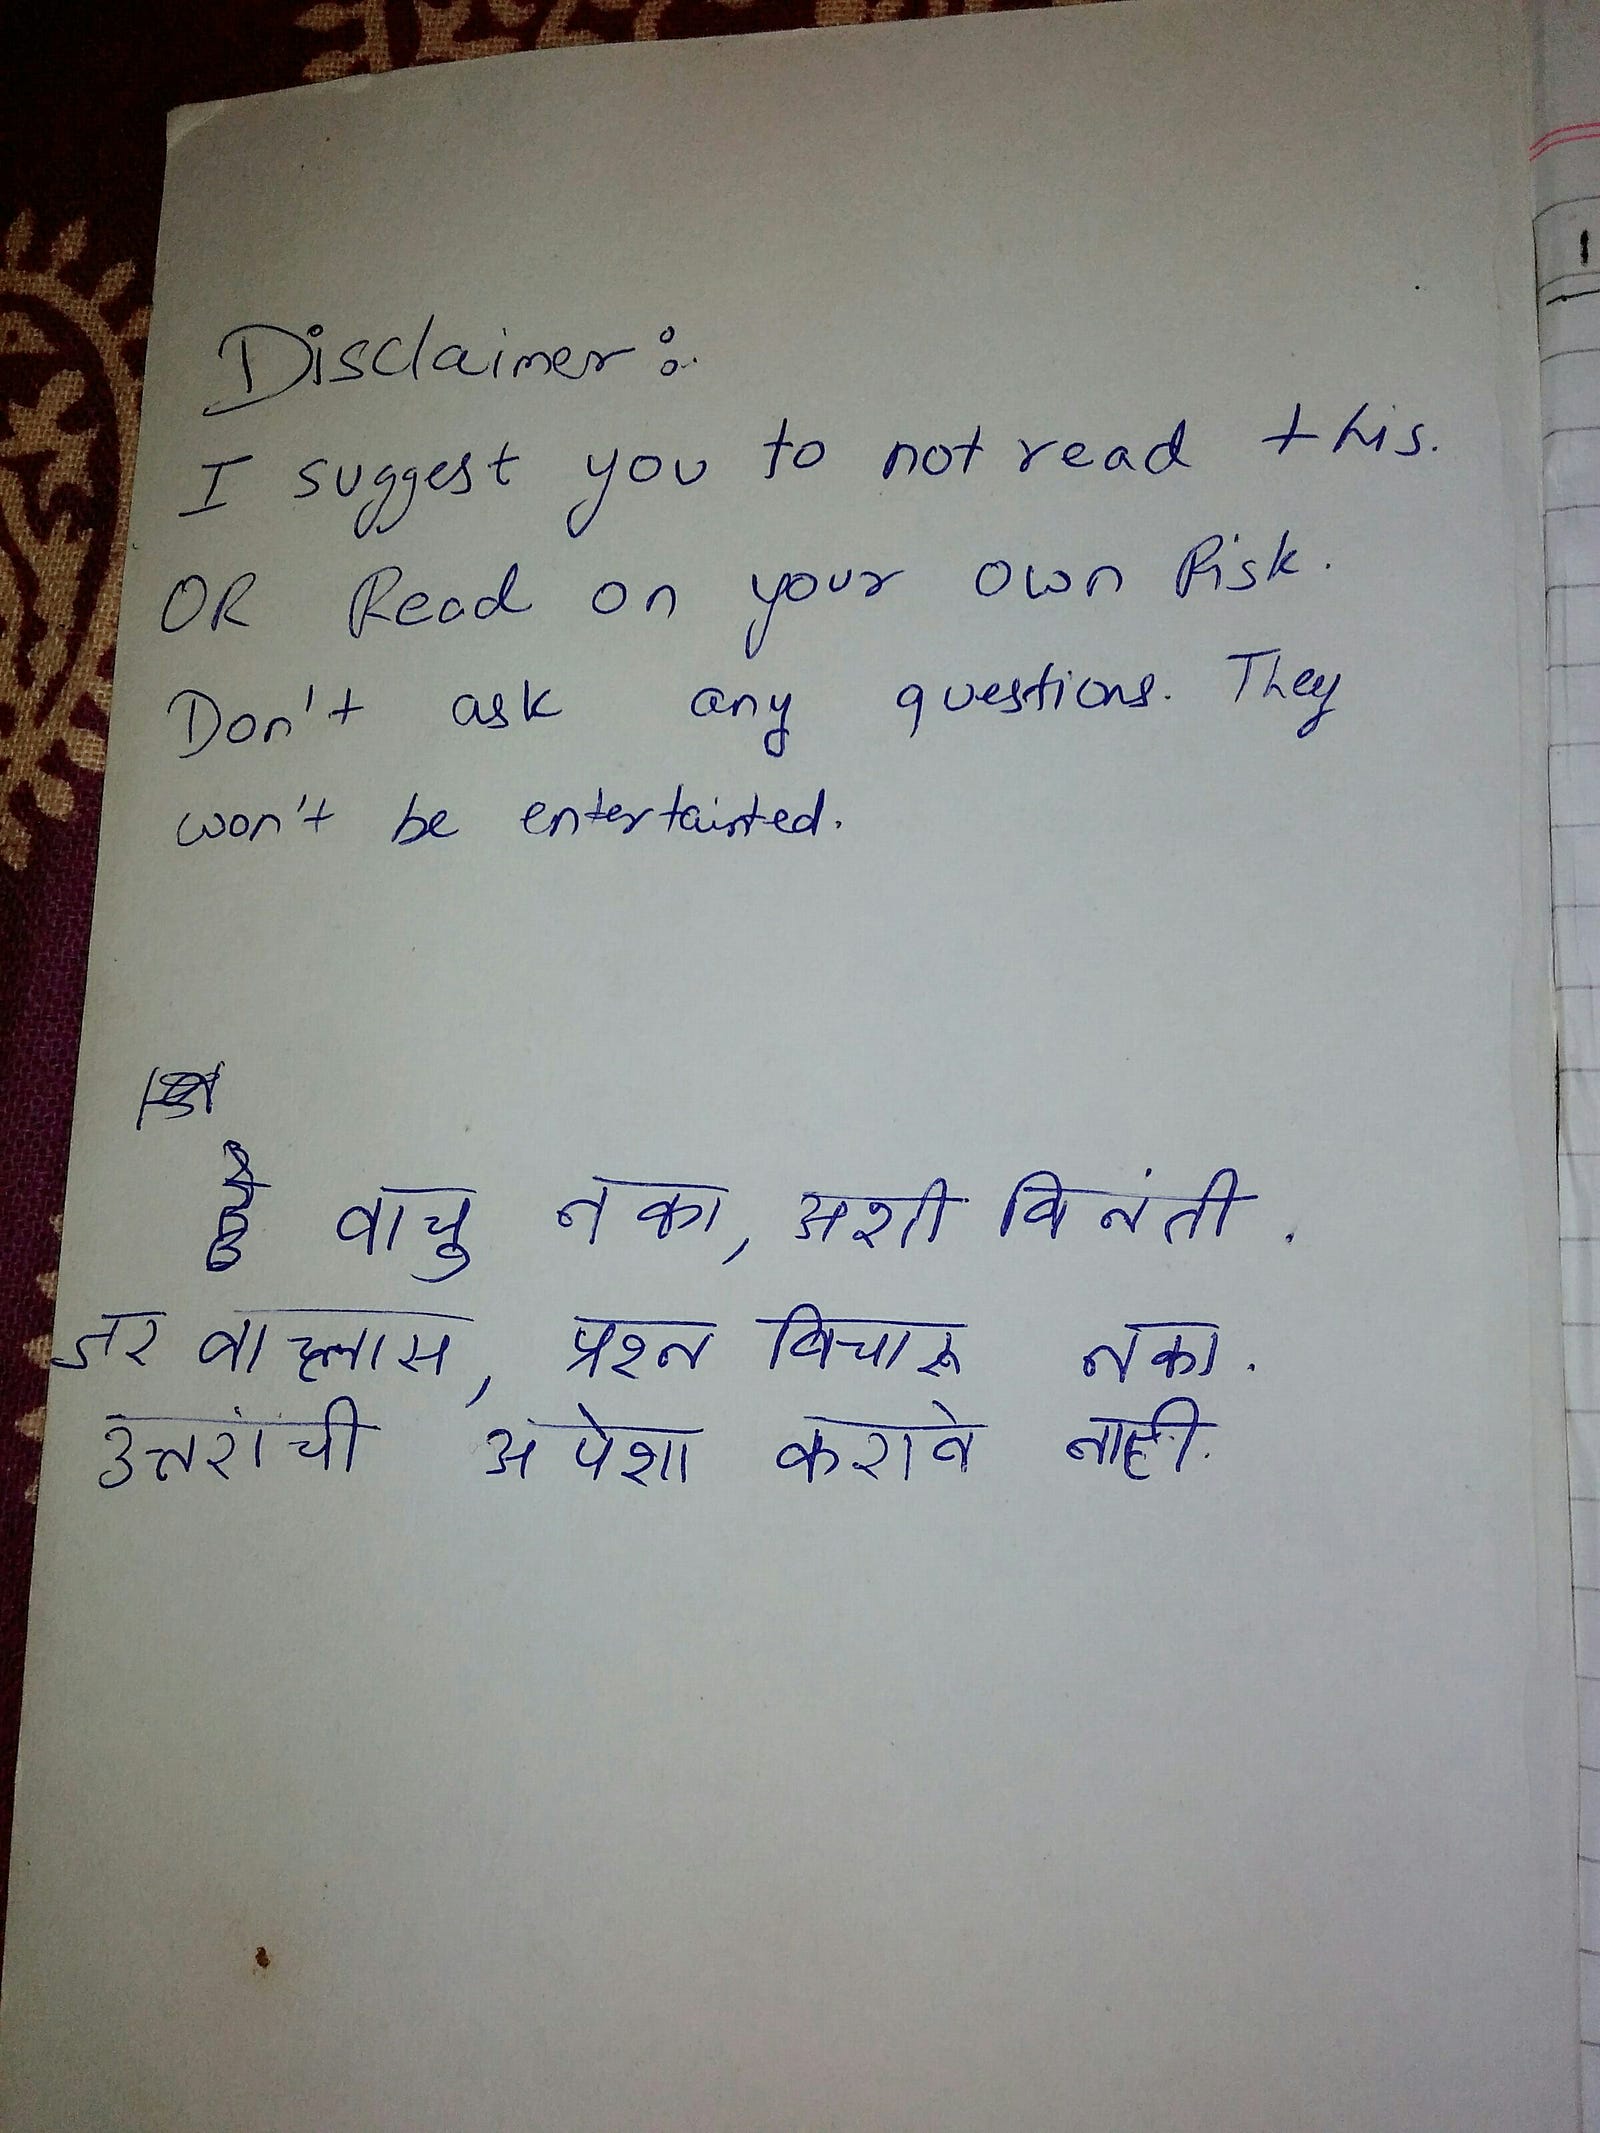 Disclaimer :
I suggest you to not read this.
OR Read on your own Risk.
Don't ask any questions. They
won't be entertainted.
हे वाचु नका, अशी विनंती .
जर वाचलास, प्रश्न विचारू नका.
उत्तरांची अपेशा करावे नाही.